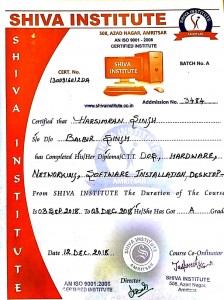 SHIVA INSTITUTE
508, AZAD NAGAR, AMRITSAR
AN ISO 9001 - 2008
CERTIFIED INSTITUTE
BATCH No. A
CERT. No.
SHIVA
INSTITUTE
www.shivainstitute.co.in
Admission No. 3484
SHIVA INSTITUTE
Certified that HARSIMRAN SINGH
S/o D/o BALBIR SINGH
has Completed His/Her Diploma/C.T.T. DOP, HARDWARE,
NETWORKING, SOFTWARE INSTALLATION, DESKTOP-
From SHIVA INSTITUTE The Duration of The Course
03 SEP. 2018 TO 03 DEC. 2018 He/She Has Got A Grade
Date 12 DEC. 2018
Course Co-Ordinator
AN ISO 9001-2008
CERTIFIED INSTITUTE
Director
SHIVA INSTITUTE
508, Azad Nagar,
Amritsar